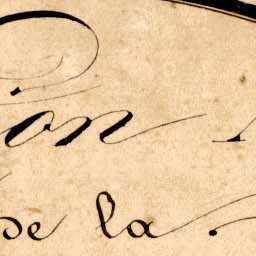 ion
de la